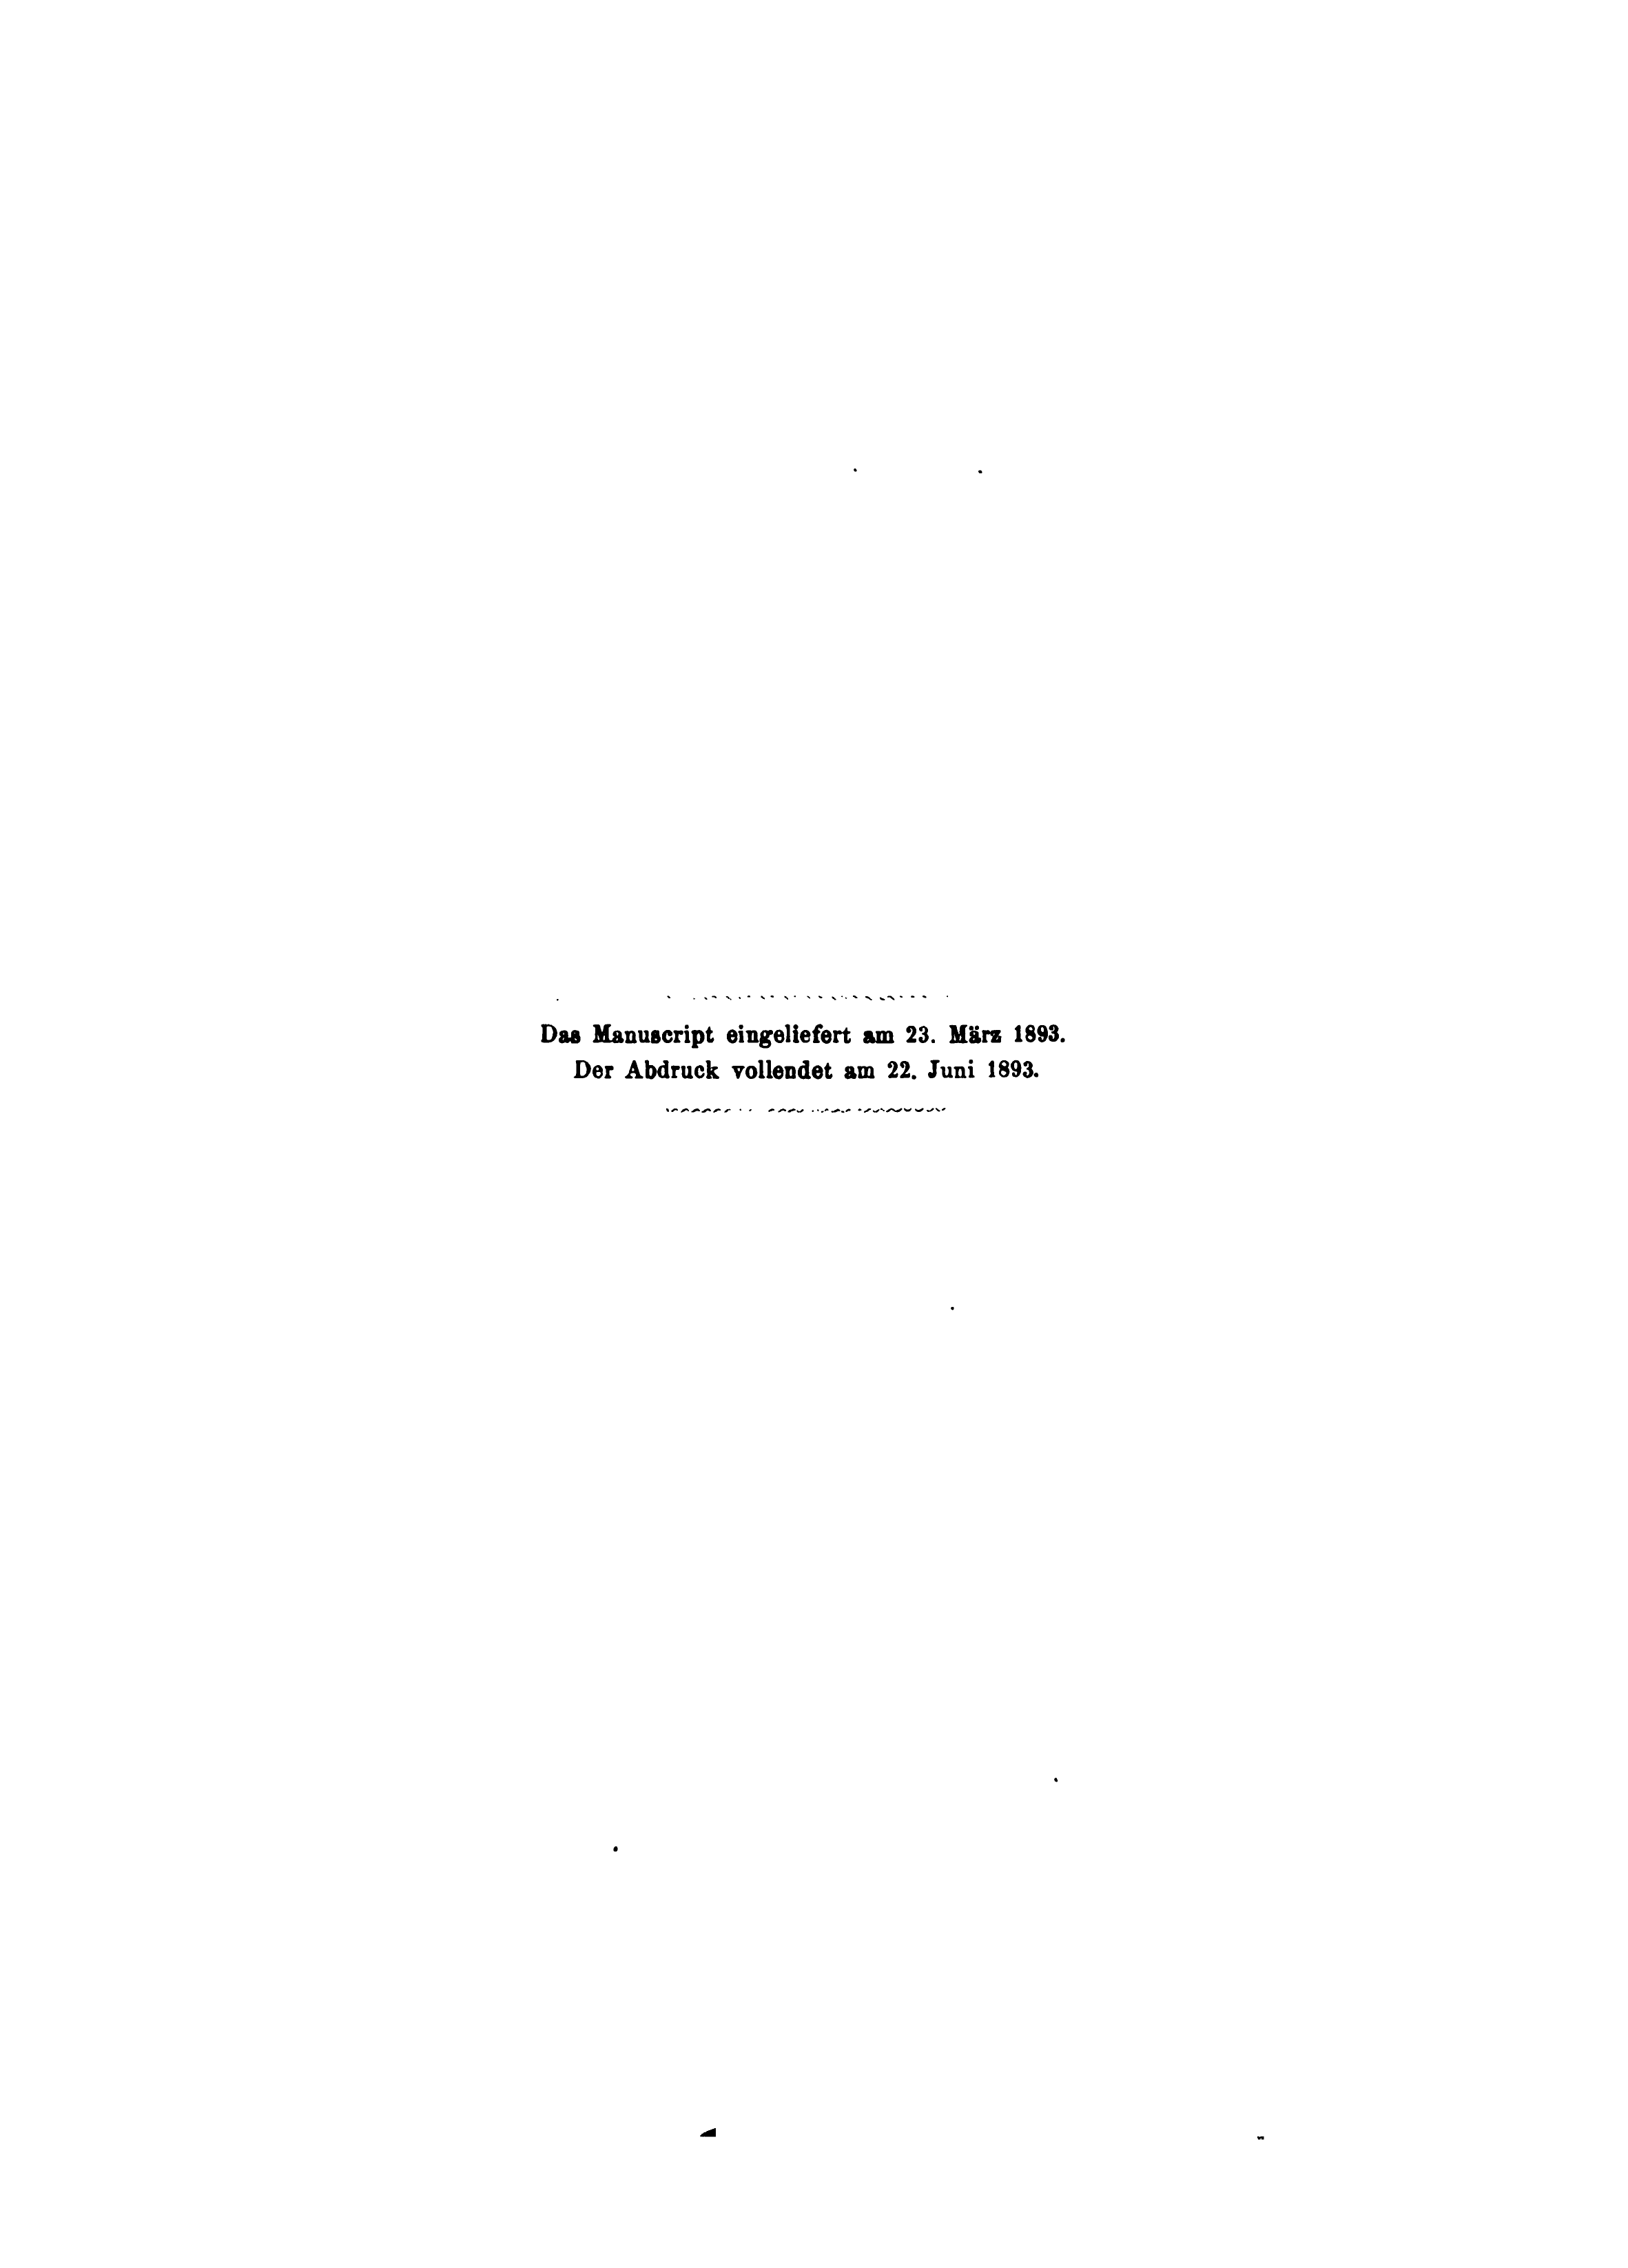 Das Manuscript eingeliefert am 23. März 1893.
Der Abdruck vollendet am 22. Juni 1893.